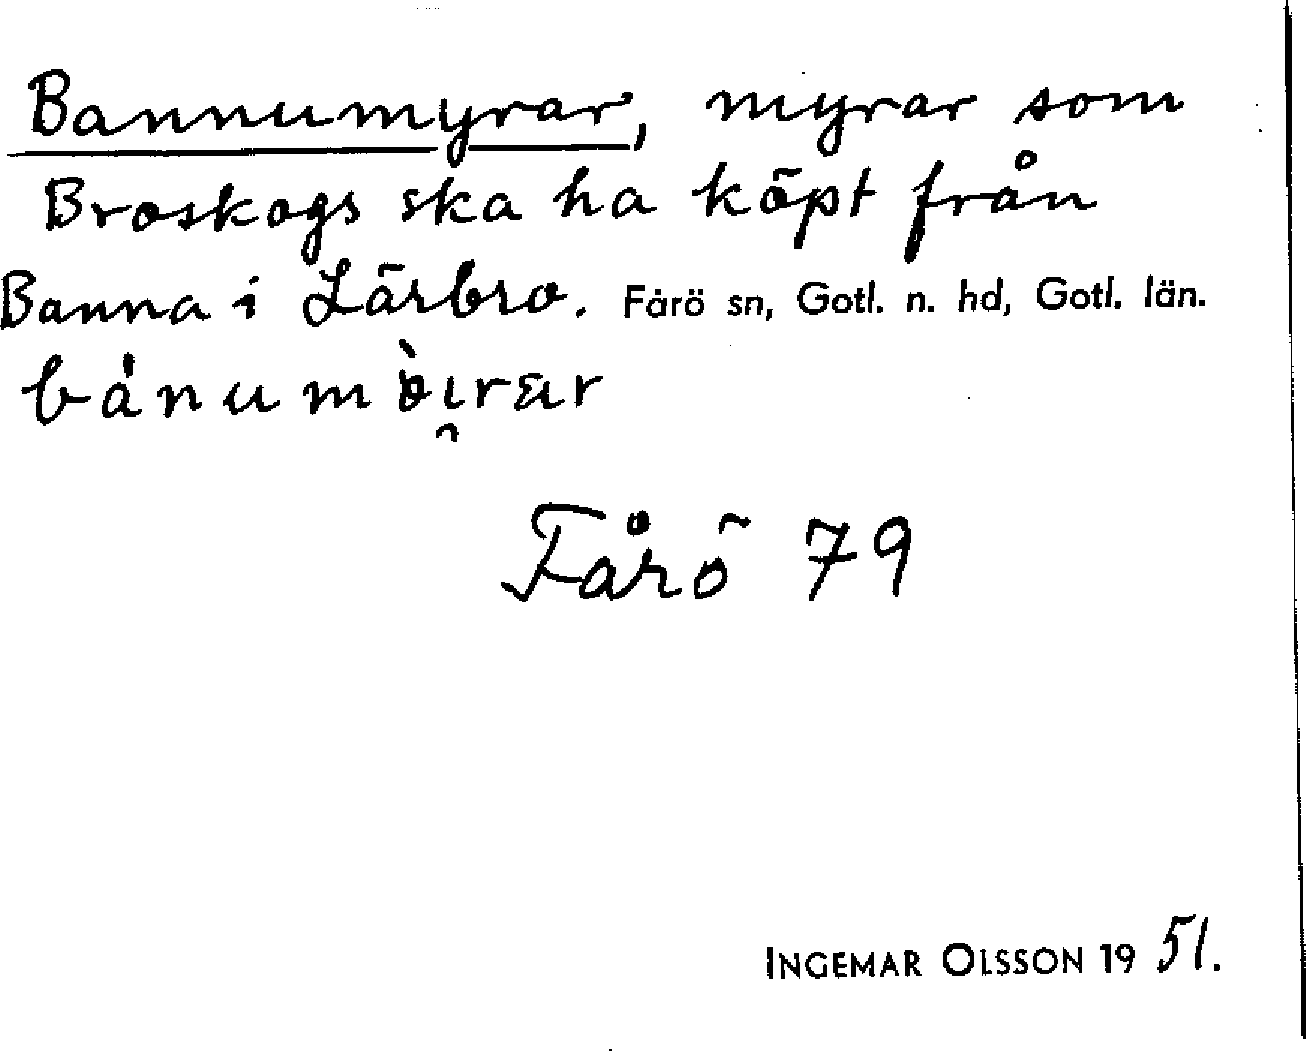 Bannumyrar, myrar som
Broskogs ska ha köpt från
Banna i Lärbro. Fårö sn, Gotl. n. hd, Gotl. län.
Fårö 79
INGEMAR OLSSON 19 51.